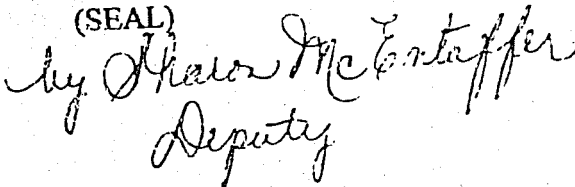 (SEAL)
by Sharon McEntaffer
Deputy